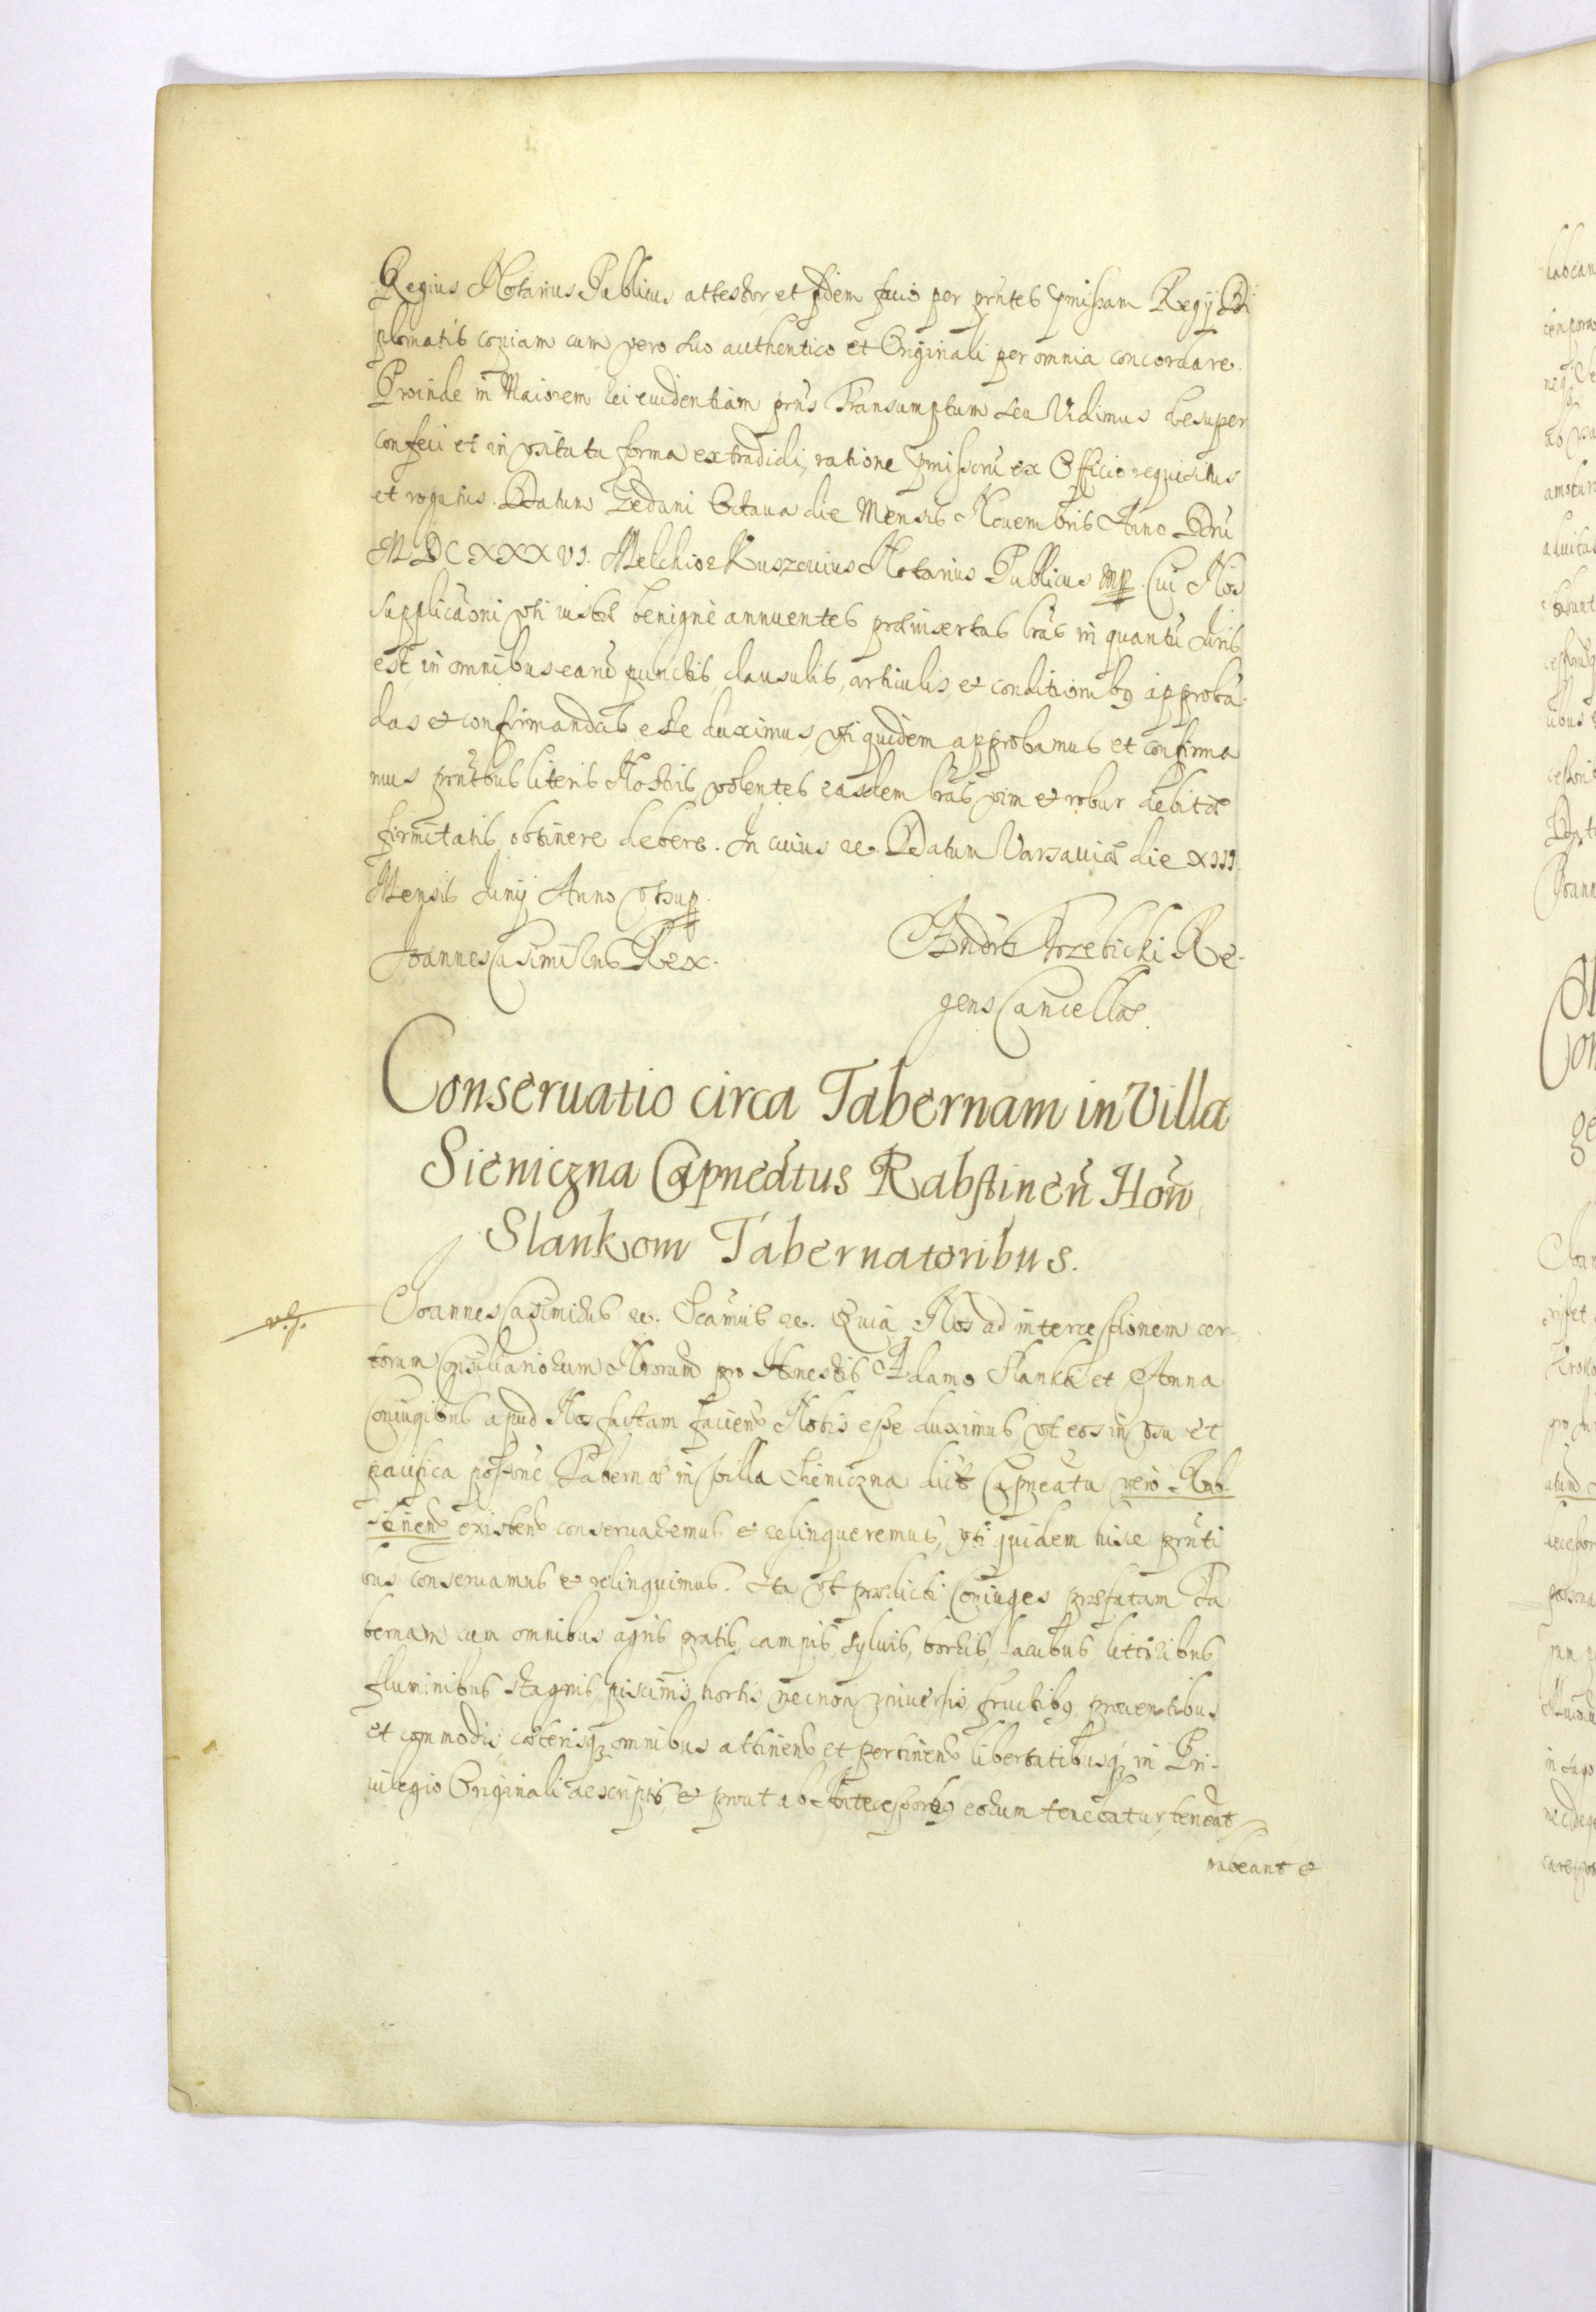 Regius Notarius Publicus attestor et fidem facio per pñtes pmissam Regij Di
plomatis copiam cum vero suo authentico et Originali per omnia concordare.
Proinde in Maiorem rei euidentiam prñs Transumptum seu Vidimus desuper
confeci et in vsitata forma extradidi, ratione pmissorũ ex Officio requisitus
et rogatus. Datum Gedani Octaua die Mensis Nouembris Anno Dñi
MDCXXXVI. Melchior Ruszouius Notarius Publicus mp. Cui Nos
supplicãoni vti iustæ benignè annuentes præinsertas lr̃as in quantũ Iuris
est in omnibus earũ punctis, clausulis, articulis, et conditionibꝫ approbã-
das et confirmandas esse duximus, vti quidem approbamus et confirma
mus pñtibus literis Nostris, volentes easdem lr̃as vim et robur debitæ
firmitatis obtinere debere. In cuius re. Datum Varsauiæ die XIII.
Mensis Iunij Anno vtsup.
Joannes Casimirus Rex.
Andrs Trzebicki Re-
gens Cancellæ.
Conseruatio circa Tabernam in Villa
Sieniczna Capneãtus Rabstineñ Hon̄
Slankom Tabernatoribus.
Joannes Casimirus re. Scamus re. Quia Nos ad intercessionem cer-
torum Consiliariorum Nrorum pro Honestis Adamo Slanka et Anna
Coniugibus apud Nos factam faciend Nobis esse duximus, vt eos in vsu et
pacifica possione Tabernæ in villa Sieniczna dict Capneatu vero Rab-
stinen existen conseruaremus et relinqueremus, vti quidem hisce pñti
bus conseruamus et relinquimus. Ita vt prædicti Coniuges præfatam Ta
bernam cum omnibus agris pratis, campis, syluis, borris, lacubus littoribus
fluminibus stagnis, piscinis, hortis, necnon vniuersis fructibꝫ, prouentibus
et commodis, cæterisqꝫ omnibus attinen et pertinen libertatibusqꝫ in Pri-
uilegio Originali descriptis, et prout ab Antecessoribꝫ eorum tenebatur, teneãt
habeant et